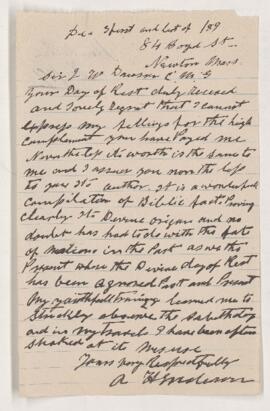 Dec 31first and last of 189
84 Boyd St.
Newton Mass.
Sir J W Dawson C M G
Your Day of Rest duly received
and sorely regret that I cannot
express my fellings for the high
complement you have payed me
Nevertheless its worth is the same to
me and I assure you non the less
to you its author. it is a wonderful
compilation of Biblic facts. Proving
clearly its Devine origen and no
doubt has had to do with the fate
of nations in the Past as well as the
Present where the Divine day of Rest
has been agnored Past and Present
My faithfull training learned me to
Strickly observe the Sabath day
and in my travels I have been often
shoked at its misuse
Yours very Respectfully
A Henderson